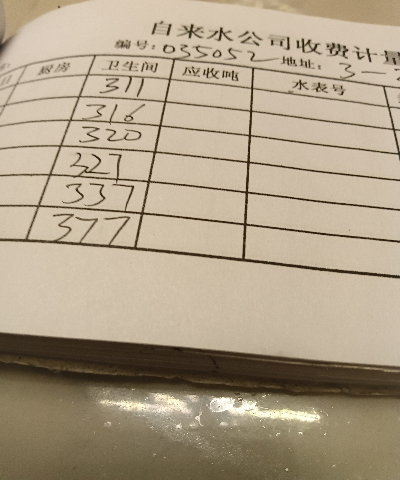 自来水公司收费计量
编号: 035052 地址: 3-
厨房 卫生间 应收吨 水表号
311
316
320
327
337
377